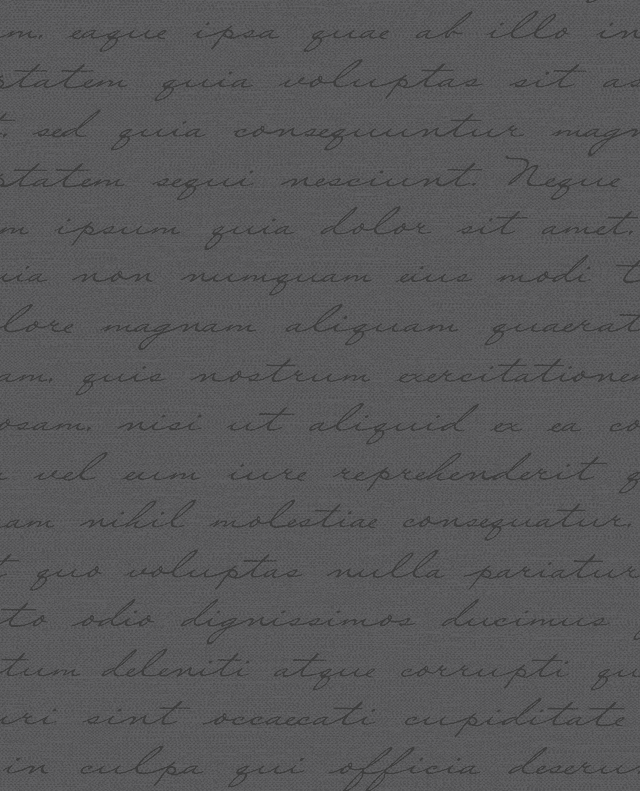 m. eaque ipsa quae ab illo in
ptatem quia voluptas sit as
t. sed quia consequuntur magn
ptatem sequi nesciunt. Neque
m ipsum quia dolor sit amet.
uia non numquam eius modi t
lore magnam aliquam quaerat
am. quis nostrum exercitationem
osam. nisi ut aliquid ex ea co
vel eum iure reprehenderit q
am nihil molestiae consequatur.
t quo voluptas nulla pariatur
to odio dignissimos ducimus
tum deleniti atque corrupti qu
uri sint occaecati cupiditate
in culpa qui officia deseru